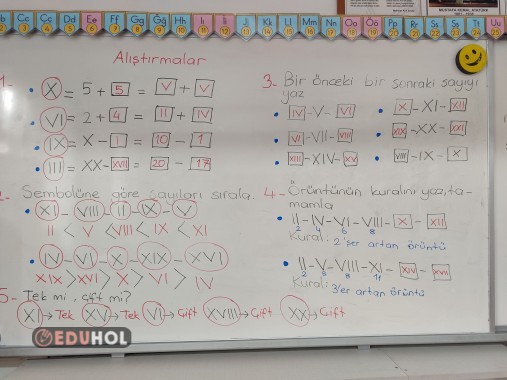 Cc Çç Dd Ee Ff Gg Ğğ Hh Iı İi Jj Kk Ll Mm Nn Oo Öö Pp Rr Ss Şş Tt Uu
MUSTAFA KEMAL ATATÜRK
Alıştırmalar
X = 5 + 5 = V + V
VI = 2 + 4 = II + IV
IX = X - I = 10 - 1
III = XX - XVII = 20 - 17
2- Sembolüne göre sayıları sırala.
XI - VIII - II - IX - V
II < V < VIII < IX < XI
IV - VI - X - XIX - XVI
XIX > XVI > X > VI > IV
3- Bir önceki bir sonraki sayıyı
yaz
IV - V - VI
X - XI - XII
VI - VII - VIII
XIX - XX - XXI
XIII - XIV - XV
VIII - IX - X
4- Örüntünün kuralını yaz, ta-
mamla
II - IV - VI - VIII - X - XII
2 4 6 8
Kural: 2'şer artan örüntü
II - V - VIII - XI - XIV - XVII
Kural: 3'er artan örüntü
5- Tek mi, çift mi?
XI → Tek XV → Tek VI → Çift XVIII → Çift XX → Çift
EDUHOL